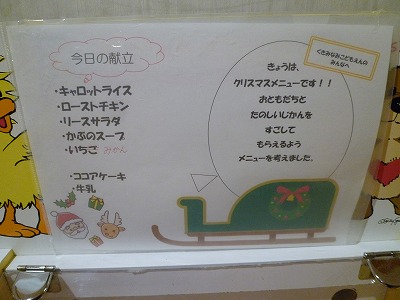 今日の献立
・キャロットライス
・ローストチキン
・リースサラダ
・かぶのスープ
・いちご みかん
・ココアケーキ
・牛乳
くきみなみこどもえんの
みんなへ
きょうは、
クリスマスメニューです！！
おともだちと
たのしいじかんを
すごして
もらえるよう
メニューを考えました。